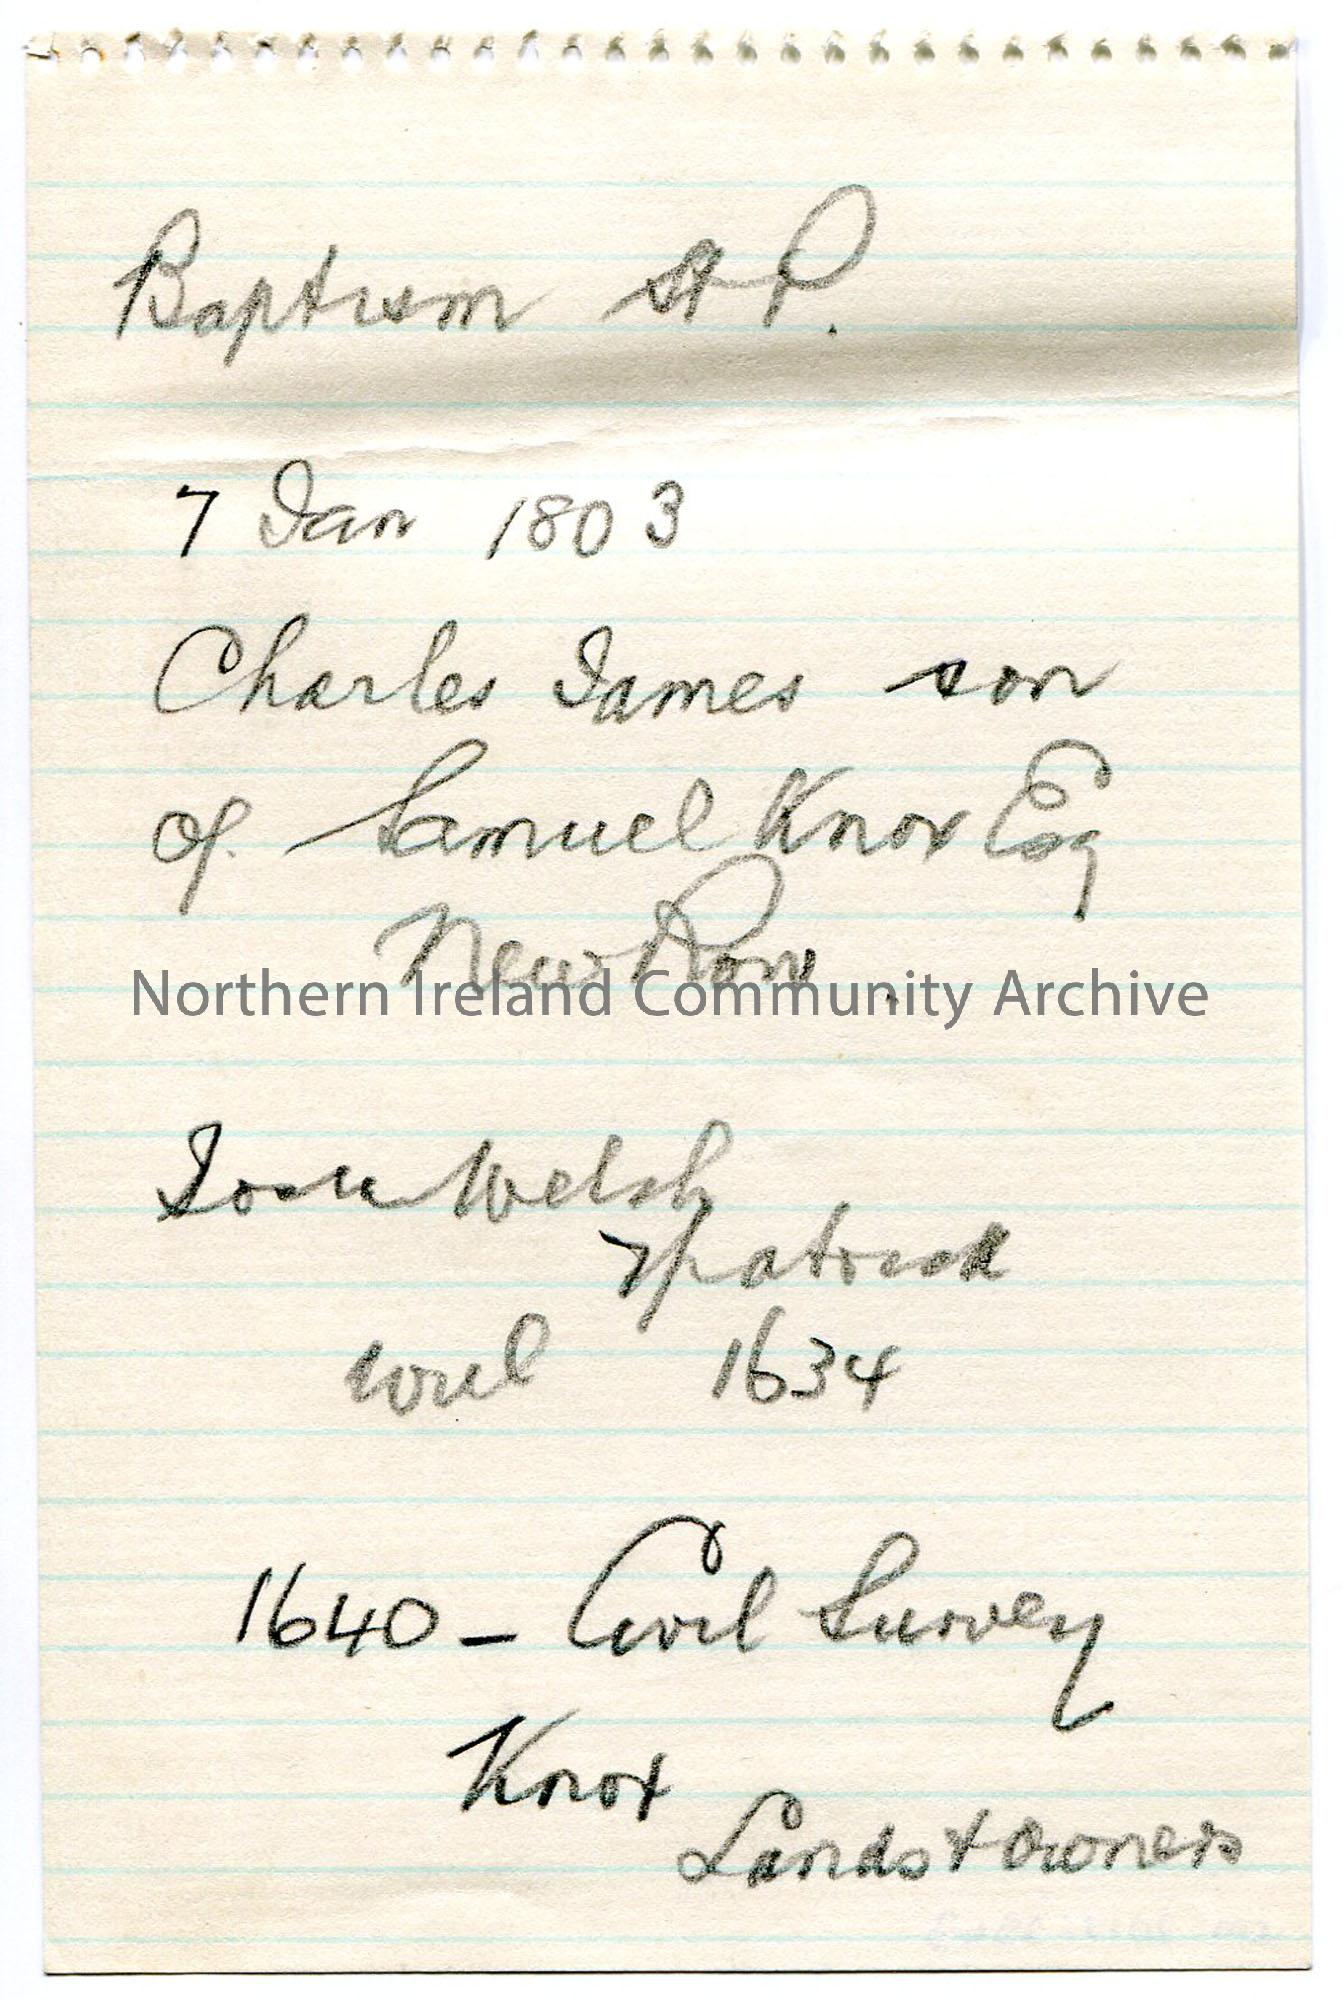 Baptism St P.
7 Jan 1803
Charles James son
of Samuel Knox Esq
New Row.
Northern Ireland Community Archive
Welsh
will 1634
1640 – Civil Survey
Knox
Lands & Owners